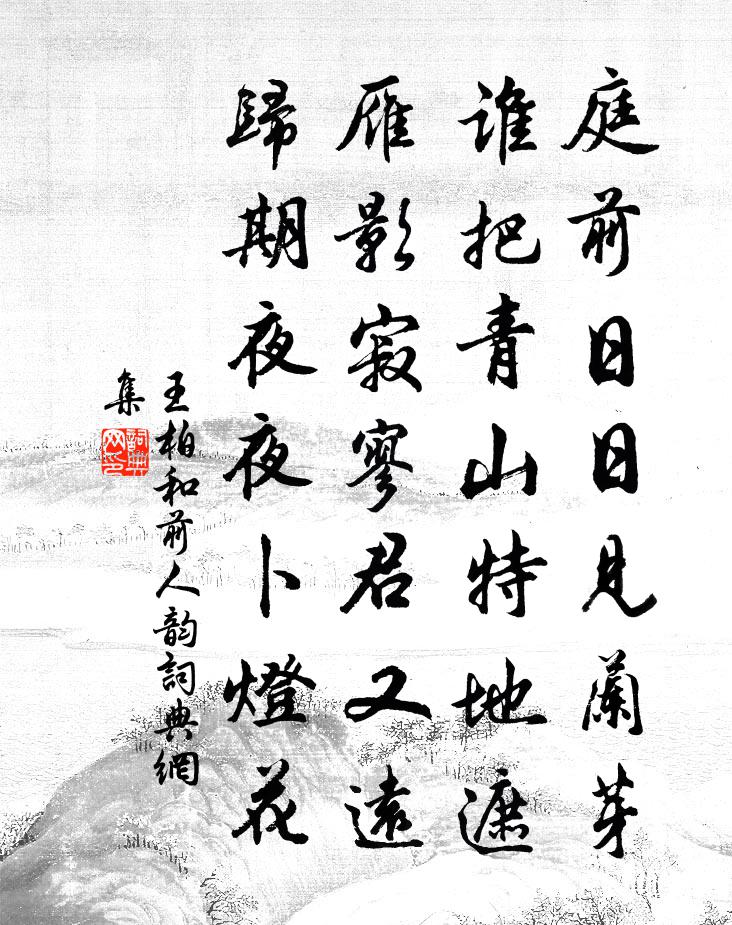 庭前日日見蘭芽
誰把青山特地遮
雁影寂寥君又遠
歸期夜夜卜燈花
王柏和前人韵詞典網
集
詞典
网印